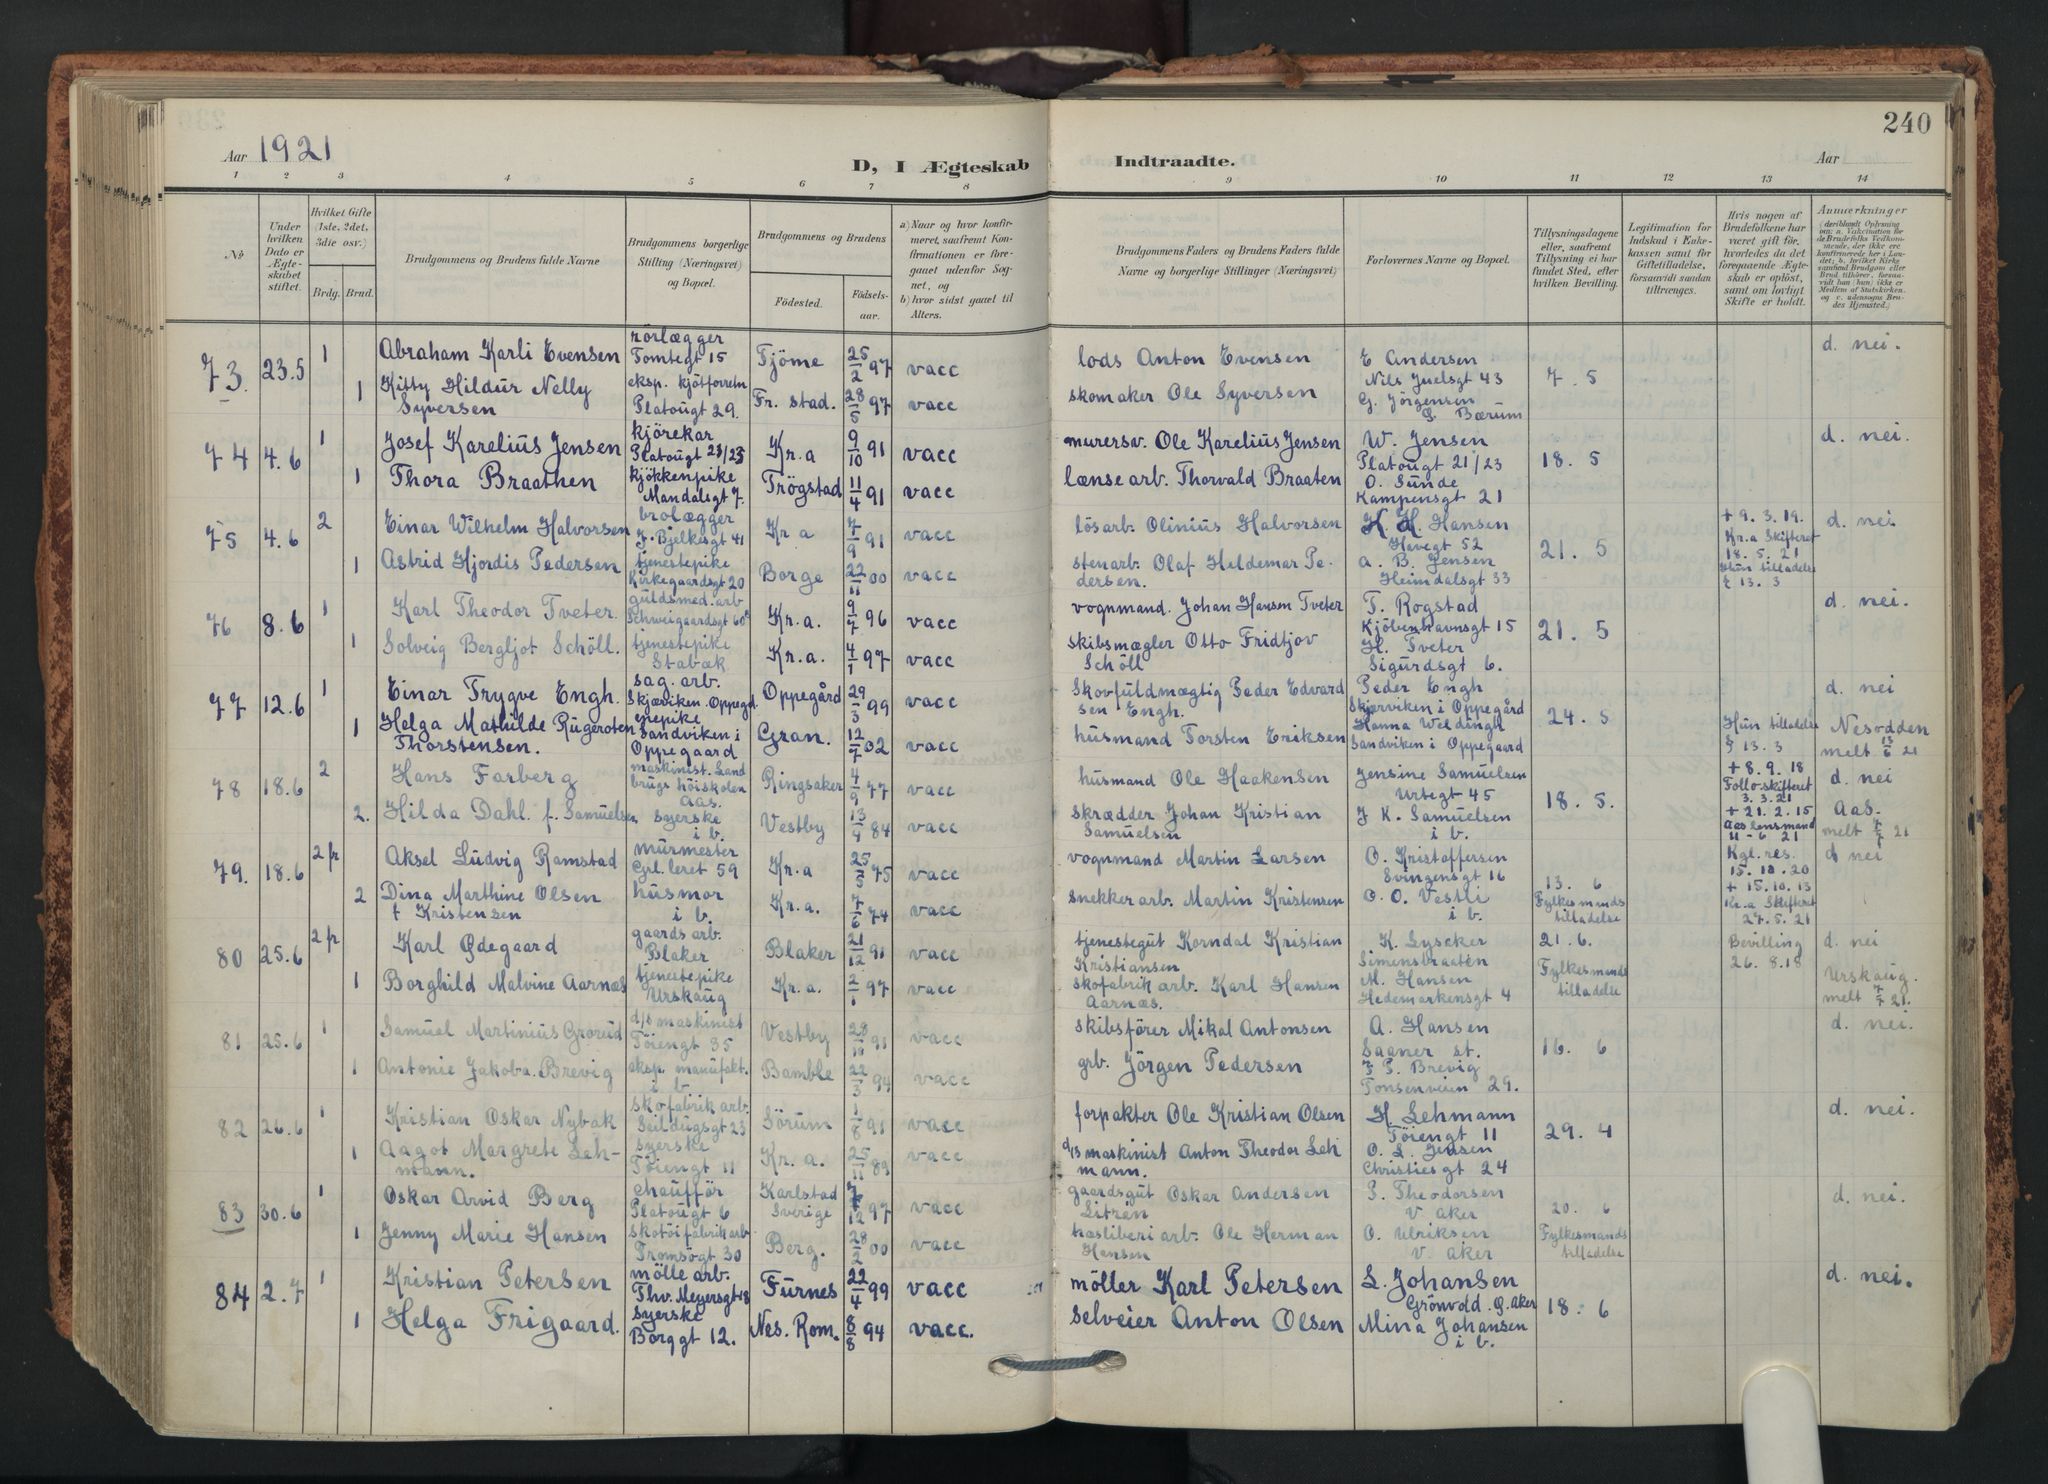 240
Aar 1921
D, I Ægteskab Indtraadte.
Aar
1 2 3 4 5 6 7 8 9 10 11 12 13 14
No
Under hvilken Dato er Ægteskabet stiftet.
Hvilket Gifte (1ste, 2det, 3die osv.)
Brdg. Brud.
Brudgommens og Brudens fulde Navne
Brudgommens borgerlige Stilling (Næringsvei) og Bopæl.
Brudgommens og Brudens
Födested. Födselsaar.
a) Naar og hvor konfirmeret, saafremt Konfirmationen er foregaaet udenfor Sognet, og
b) hvor sidst gaaet til Alters.
Brudgommens Faders og Brudens Faders fulde Navne og borgerlige Stillinger (Næringsvei)
Forlovernes Navne og Bopæl.
Tillysningsdagene eller, saafremt Tillysning ei har fundet Sted, efter hvilken Bevilling.
Legitimation for Indskud i Enkekassen samt for Giftetilladelse, forsaavidt saadan tiltrænges.
Hvis nogen af Brudefolkene har været gift för, hvorledes da det foregaaende Ægteskab er oplöst, samt om lovligt Skifte er holdt.
Anmærkninger
(deriblandt Oplysning om: a. Vakcination for de Brudefolks Vedkommende, der ikke ere konfirmerede her i Landet; b. hvilket Kirkesamfund Brudgom eller Brud tilhörer, forsaavidt han (hun) ikke er Medlem af Statskirken. og c. udensogns Brudes Hjemsted.)
73 23.5 1 Abraham Karli Evensen rörlægger Tomtegt 15 Tjöme 25/2 97 vacc lods Anton Evensen E Andersen Nils Juelsgt 43 7.5 d. nei.
1 Kitty Hildur Nelly Syversen eksp. kjötforretn Platougt 29. Fr. stad. 28/5 97 vacc skomaker Ole Syversen G. Jörgensen Ö. Bærum
74 4.6 1 Josef Karelius Jensen kjörekar Platougt 23/25 Kr.a 9/10 91 vacc murersv. Ole Karelius Jensen W. Jensen Platougt 21/23 18.5 d. nei.
1 Thora Braathen kjökkenpike Mandalsgt 7. Trögstad 11/4 91 vacc lænse arb. Thorvald Braaten O. Sunde Kampensgt 21
75 4.6 2 Einar Wilhelm Halvorsen brolægger J. Bjelkesgt 41 Kr a 7/9 91 vacc lösarb. Olinius Halvorsen H. H. Hansen Havegt 52 21.5 + 9.3.19. Kr.a Skifteret 18.5.21 d. nei
1 Astrid Hjördis Pedersen tjenestepike Kirkegaardsgt 20 Borge 22/11 00 vacc stenarb. Olaf Hildemar Pedersen. A. B. Jensen Heimdalsgt 33 Hun tilladelse § 13.3
76 8.6 1 Karl Theodor Tveter guldsmed. arb Schweigaardsgt 60 Kr.a. 9/7 96 vacc vognmand. Johan Hansen Tveter T. Rogstad Kjöbenhavnsgt 15 21.5 d. nei.
1 Solveig Bergljot Schöll. tjenestepike Stabæk Kr.a. 4/1 97 vacc skibsmægler Otto Fridtjov Schöll H. Tveter Sigurdsgt 6.
77 12.6 1 Einar Trygve Engh. sag. arb. Skjærviken. Oppegd. Oppegård 29/3 99 vacc Skovfuldmægtig Peder Edvardsen Engh. Peder Engh Skjærviken i Oppegård 24.5 d. nei
1 Helga Mathilde Rugeroten Thorstensen. Sandviken i Oppegaard Gran. 12/7 02 vacc husmand Torsten Eriksen Hanna Weldingh Sandviken i Oppegaard Hun tilladelse § 13.3 Nesodden melt 13/6 21
78 18.6 2 Hans Farberg maskinist. Landbrugshöiskolen Aas. Ringsaker 4/9 77 vacc husmand Ole Haakensen Jensine Samuelsen Urtegt 45 18.5. + 8.9.18 Folloskifteret 3.3.21 d. nei
2. Hilda Dahl. f. Samuelsen syerske i b. Vestby 13/9 84 vacc skrædder Johan Kristian Samuelsen J K. Samuelsen i b. + 21.2.15 Aas lensmand 11-6 21 Aas. melt 7/7 21
79. 18.6 2 fr Aksel Ludvig Ramstad murmester Grl. leret 59 Kr.a 25/5 75 vacc vognmand Martin Larsen O. Kristoffersen Svingensgt 16 13.6 Kgl. res. 15.10.20 d nei
2 Dina Marthine Olsen f Kristensen husmor i b. Kr.a. 7/6 74 vacc snekker arb. Martin Kristensen O. O. Vestli i b. Fylkesmands tilladelse + 15.10.13 Kr.a Skifteret 27.5.21
80 25.6 2 fr Karl Ødegaard gaards arb. Blaker Blaker 21/12 91 vacc tjenestegut Korndal Kristian Kristiansen K. Lyseker Simensbraaten 21.6. Bevilling 26.8.18 d. nei
1 Borghild Malvine Aarnæs tjenestepike Urskaug Kr.a. 2/1 97 vacc skofabrik arb. Karl Hansen Aarnæs. M. Hansen Hedemarkensgt 4 Fylkesmands tilladelse Urskaug. melt 7/7 21.
81 25.6 1 Samuel Martinius Grorud d/s maskinist Töiengt 35 Vestby 28/10 91 vacc skibsförer Mikal Antonsen A. Hansen Saaner st. 16.6 d. nei.
1 Antonie Jakoba. Brevig eksp. manufakt. i b. Bamble 22/3 94 vacc grb. Jörgen Pedersen J. P. Brevig Tonsenveien 29.
82 26.6 1 Kristian Oskar Nybak skofabrik arb. Seildugsgt 23 Sörum 1/8 91 vacc forpakter Ole Kristian Olsen H. Lehmann Töiengt 11 29.4 d. nei.
1 Aagot Margrete Lehmann. syerske Töiengt 11 Kr. a. 25/11 89 vacc d/s maskinist Anton Theodor Lehmann. O. L. Jensen Christiesgt 24
83 30.6 1 Oskar Arvid Berg chaufför Platougt 6 Karlstad Sverige 7/12 97 vacc gaardsgut Oskar Andersen Liträn P. Theodorsen V. Aker 20.6 d. nei.
1 Jenny Marie Hansen skotöifabrik arb Tromsögt 30 Berg. 28/2 00 vacc Ole Herman Hansen O. Ulriksen V. Aker Fylkesmands tilladelse
84 2.7 1 Kristian Petersen mölle arb. Thv. Meyersgt 18 Furnes 22/4 99 vacc möller Karl Petersen L. Johansen Grönvold. Ö. Aker 18.6 d. nei.
1 Helga Frigaard. syerske Borggt 12. Nes. Rom. 8/8 94 vacc. selveier Anton Olsen Mina Johansen i b.